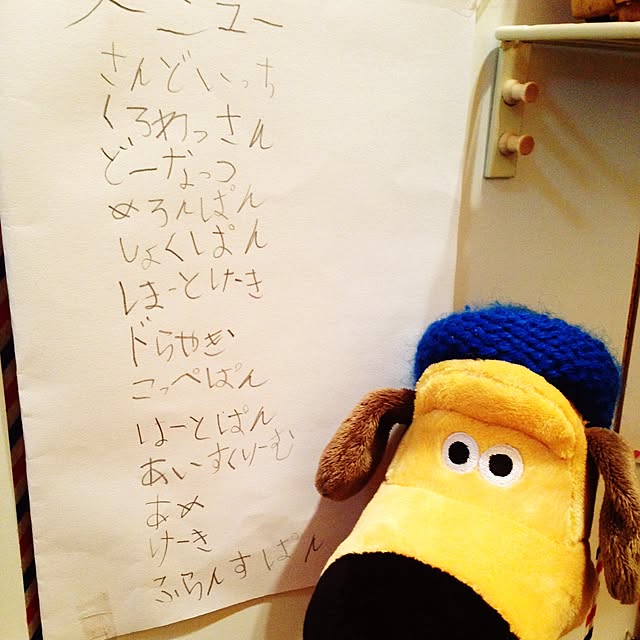 メニュー
さんどいっち
くろわっさん
どーなっつ
めろんぱん
しょくぱん
はーとけーき
ドらやき
こっぺぱん
はーとぱん
あいすくりーむ
あめ
けーき
ふらんすぱん